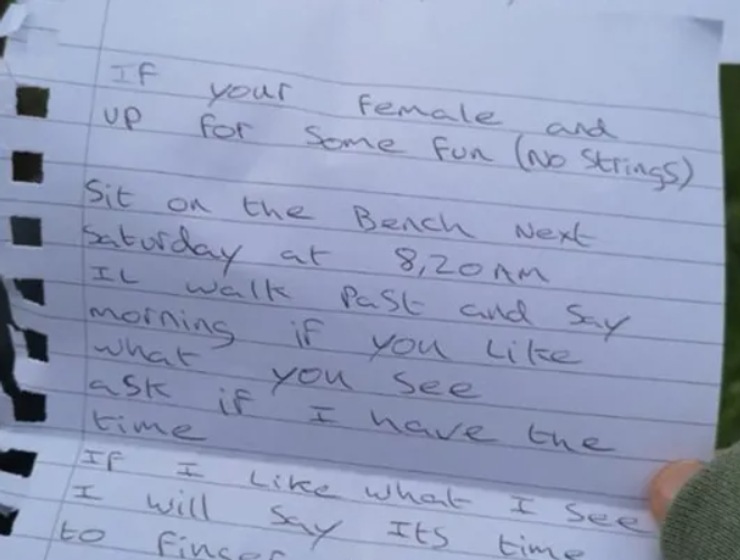 IF your Female and
up for some fun (No Strings)
Sit on the Bench Next
Saturday at 8,20AM
IL walk Past and Say
morning if you Like
what you see
ask if I have the
time
IF I Like what I see
I will say ITS time
to finger